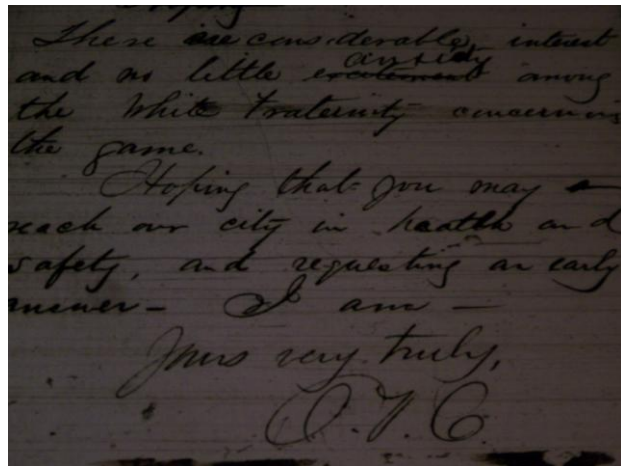 There is considerable, interest
and no little excitement anxiety among
the White Fraternity concerning
the game.
Hoping that you may
reach our city in health and
safety, and requesting an early
answer - I am -
Yours very truly,
O.V.C.